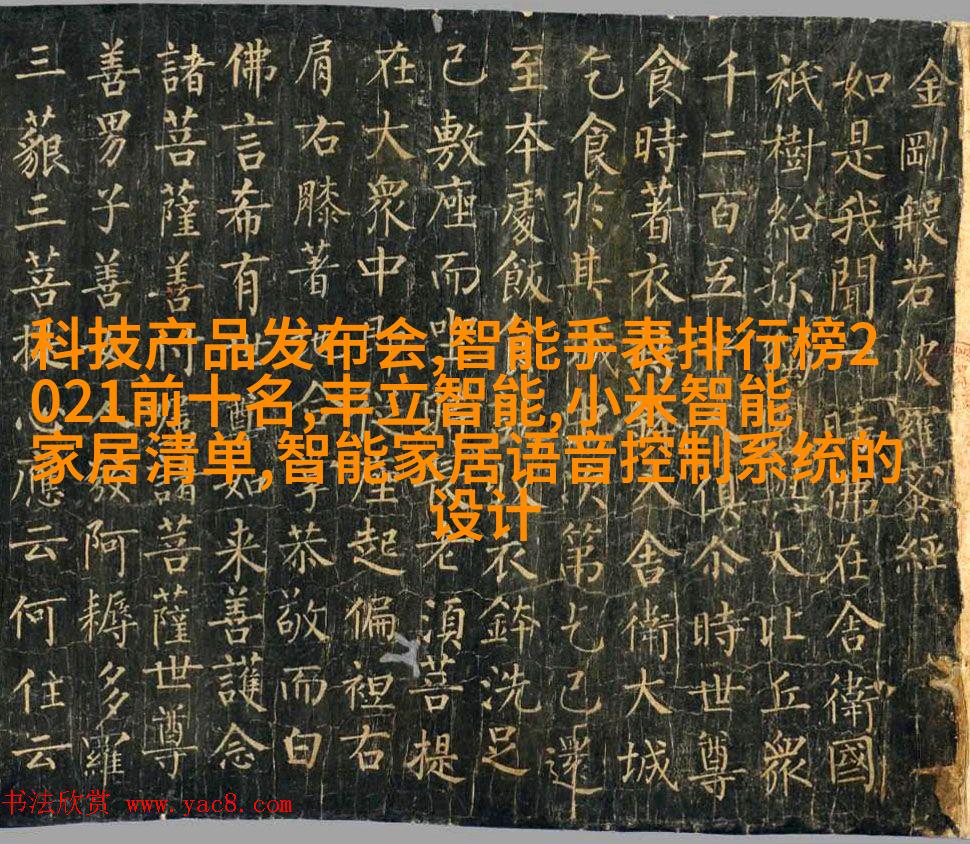 金剛般若波羅蜜經
如是我聞一時佛在舍衛國
祇樹給孤大比丘眾
千二百五俱尒時世尊
食時著衣入舍衛大城
乞食於其次第乞已還
至本處飯食衣鉢洗足
已敷座而坐老須菩提
在大眾中座起偏袒右
肩右膝著恭敬而白
佛言希有世尊如来善護念
諸菩薩善付諸菩薩世尊
善男子善發阿耨多羅
三藐三菩提應云何住云
科技产品发布会,智能手表排行榜2
021前十名,丰立智能,小米智能
家居清单,智能家居语音控制系统的
设计
书法欣赏 www.yac8.com